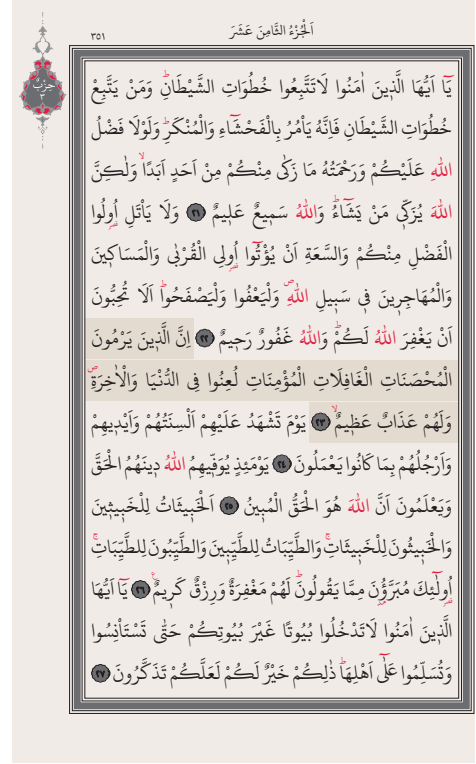 اَلْجُزْءُ الثَّامِنَ عَشَرَ
٣٥١
حِزْب
٣
يَٓا اَيُّهَا الَّذ۪ينَ اٰمَنُوا لَاتَتَّبِعُوا خُطُوَاتِ الشَّيْطَانِۜ وَمَنْ يَتَّبِعْ
خُطُوَاتِ الشَّيْطَانِ فَاِنَّهُ يَأْمُرُ بِالْفَحْشَٓاءِ وَالْمُنْكَرِۜ وَلَوْلَا فَضْلُ
اللّٰهِ عَلَيْكُمْ وَرَحْمَتُهُ مَا زَكٰى مِنْكُمْ مِنْ اَحَدٍ اَبَدًاۙ وَلٰكِنَّ
اللّٰهَ يُزَكّ۪ي مَنْ يَشَٓاءُۜ وَاللّٰهُ سَم۪يعٌ عَل۪يمٌ ٢١ وَلَا يَأْتَلِ اُو۬لُوا
الْفَضْلِ مِنْكُمْ وَالسَّعَةِ اَنْ يُؤْتُٓوا اُو۬لِي الْقُرْبٰى وَالْمَسَاك۪ينَ
وَالْمُهَاجِر۪ينَ ف۪ي سَب۪يلِ اللّٰهِۖ وَلْيَعْفُوا وَلْيَصْفَحُواۜ اَلَا تُحِبُّونَ
اَنْ يَغْفِرَ اللّٰهُ لَكُمْۜ وَاللّٰهُ غَفُورٌ رَح۪يمٌ ٢٢ اِنَّ الَّذ۪ينَ يَرْمُونَ
الْمُحْصَنَاتِ الْغَافِلَاتِ الْمُؤْمِنَاتِ لُعِنُوا فِي الدُّنْيَا وَالْاٰخِرَةِۖ
وَلَهُمْ عَذَابٌ عَظ۪يمٌۙ ٢٣ يَوْمَ تَشْهَدُ عَلَيْهِمْ اَلْسِنَتُهُمْ وَاَيْد۪يهِمْ
وَاَرْجُلُهُمْ بِمَا كَانُوا يَعْمَلُونَ ٢٤ يَوْمَئِذٍ يُوَفّ۪يهِمُ اللّٰهُ د۪ينَهُمُ الْحَقَّ
وَيَعْلَمُونَ اَنَّ اللّٰهَ هُوَ الْحَقُّ الْمُب۪ينُ ٢٥ اَلْخَب۪يثَاتُ لِلْخَب۪يث۪ينَ
وَالْخَب۪يثُونَ لِلْخَب۪يثَاتِۚ وَالطَّيِّبَاتُ لِلطَّيِّب۪ينَ وَالطَّيِّبُونَ لِلطَّيِّبَاتِۚ
اُو۬لٰٓئِكَ مُبَرَّؤُ۫نَ مِمَّا يَقُولُونَۜ لَهُمْ مَغْفِرَةٌ وَرِزْقٌ كَر۪يمٌ۟ ٢٦ يَٓا اَيُّهَا
الَّذ۪ينَ اٰمَنُوا لَاتَدْخُلُوا بُيُوتًا غَيْرَ بُيُوتِكُمْ حَتّٰى تَسْتَأْنِسُوا
وَتُسَلِّمُوا عَلٰٓى اَهْلِهَاۜ ذٰلِكُمْ خَيْرٌ لَكُمْ لَعَلَّكُمْ تَذَكَّرُونَ ٢٧